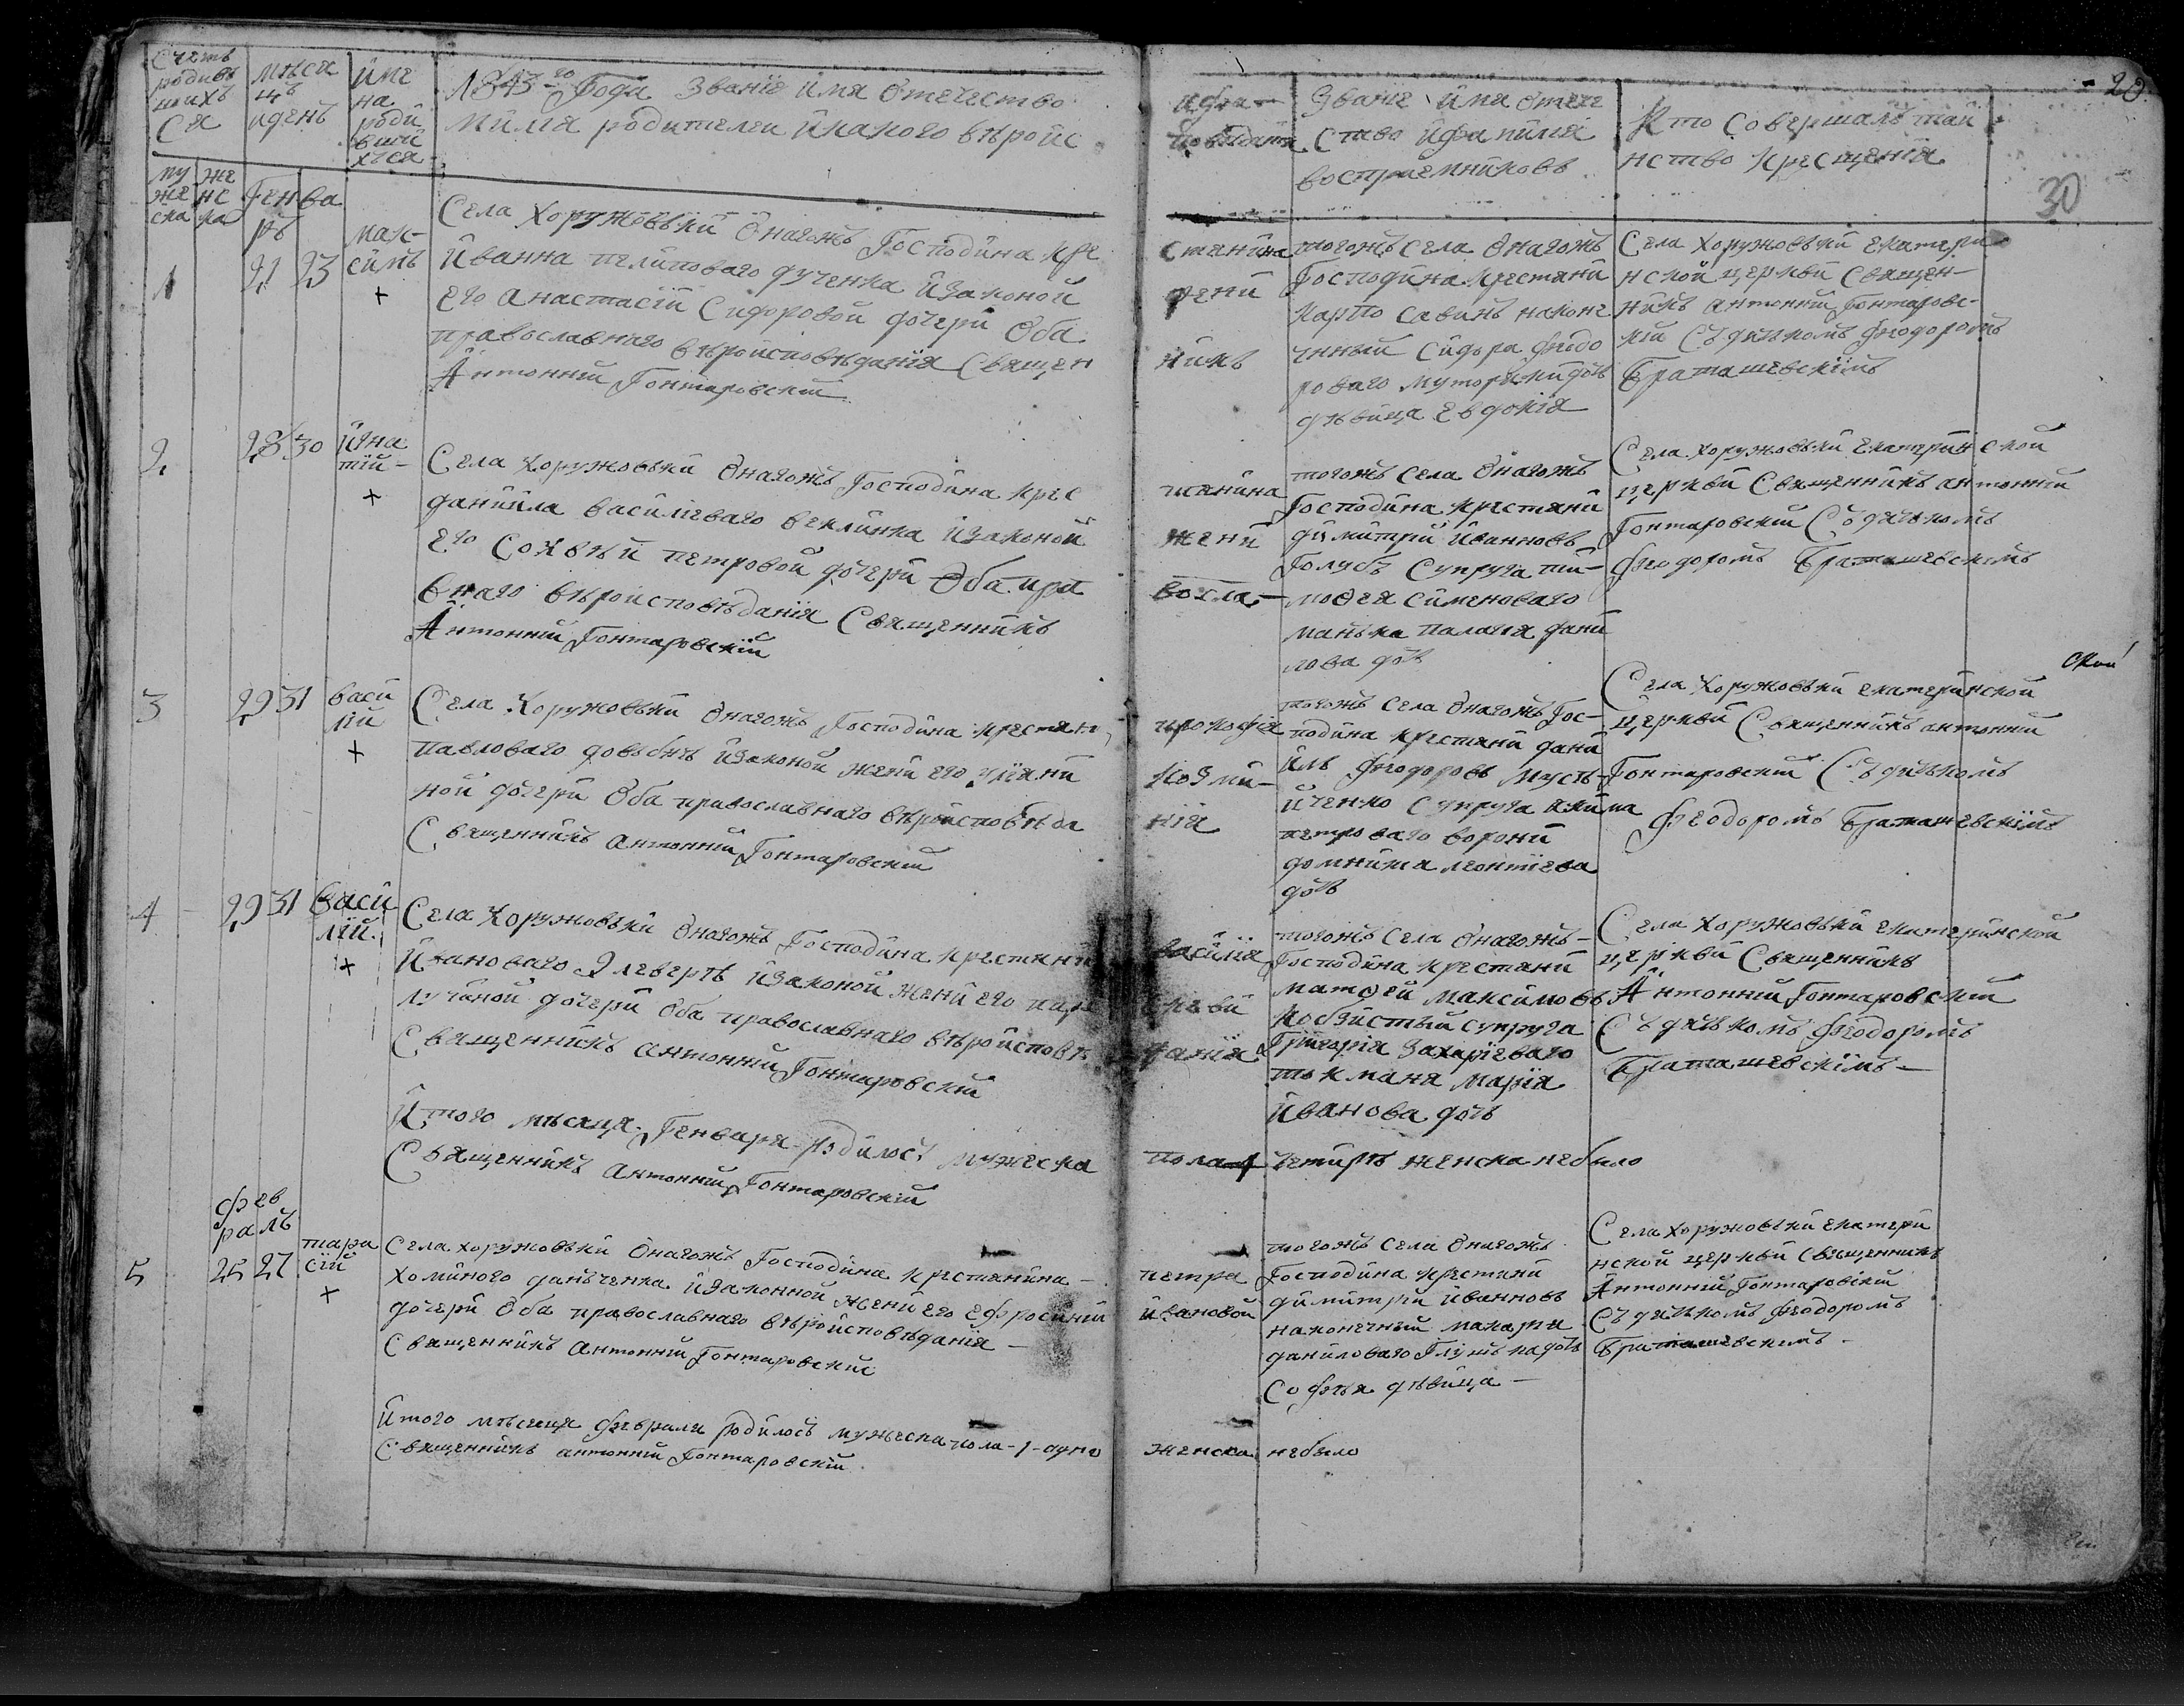 Счетъ
родив
шихъ
ся
мѣся
цъ
и день
име
на
роди
вши
хся
1843-го Года Званіе имя отечество
милія родителеи и какого вѣроис
и фа-
повѣдані
Званіе имя отече
ство и фамилія
восприемниковъ
Кто совершалъ таи
нство крещенія
20
30
му
же
ска
же
нс
ка
Генва
рь
1
21
23
Мак-
симъ
Села Хоружовки онагожъ Господина кре
Иванна
его Анастасіи Сидоровой дочери оба
православнаго вѣроисповѣданія Священ
Антоній Гонтаровскій
стянина
жени
никъ
тогожъ села онагожъ
Господина крестяни
Савинъ
Сидора Феодо
роваго дочъ
дѣвица Евдокія
Села Хоружовки Екатери
нской церкви Священ-
никъ Антоній Гонтаровс-
кій Съ дячкомъ Феодоромъ
Браташевскімъ
2
28
30
Игна
тій-
Села Хоружовки онагожъ Господина крес
Даниила Василіеваго и законой
его Петровой дочери оба пра
внаго вѣроисповѣданія Священникъ
Антоній Гонтаровскій
тянина
жени
восла-
тогожъ села онагожъ
Господина крестяни
Димитрій Иванновъ
Голубъ Супруга ти-
мофея Сименоваго
манька Палагія Дани
лова дочъ
Села Хоружовки Екатеринской
церкви Священникъ Антоній
Гонтаровскій Съ дячкомъ
Феодоромъ Браташевскімъ
3
29
31
Васи
лій
Села Хоружовки онагожъ Господина крестян
Павловаго и законой жени его
ной дочери оба православнаго вѣроисповѣда
Священникъ Антоній Гонтаровскій
Прокофія
Козми-
нія
тогожъ села онагожъ Гос-
подина крестяни Дани
илъ Феодоровъ
Супруга
Петроваго Ворони
Леонтіева
дочъ
ской
Села Хоружовки Екатеринской
церкви Священникъ Антоній
Гонтаровскій Съ дячкомъ
Феодоромъ Браташевскімъ
4
29
31
Васи
лій
Села Хоружовки онагожъ Господина крестяни
Ивановаго и законой жени его
дочери оба православнаго вѣроисповѣ
Священникъ Антоній Гонтаровскій
Василія
данія
тогожъ села онагожъ-
Господина крестяни
Матфей Максимовъ
Супруга
Григорія Захаріеваго
Марія
Иванова дочъ
Села Хоружовки Екатеринской
церкви Священникъ
Антоній Гонтаровскій
Съ дячкомъ Феодоромъ
Браташевскімъ-
Итого мѣсяца Генваря родилось мужеска
Священникъ Антоній Гонтаровскій
пола 4
четире женска небыло
Фев
раль
5
25
27
Тара
сій
Села Хоружовки онагожъ Господина крестянина-
Хоминого Данъченка и законной жени его Ефросиніи
дочери оба православнаго вѣроисповѣданія-
Священникъ Антоній Гонтаровскій
Петра
Ивановой
тогожъ села онагожъ
Господина крестяни
Димитри Иванновъ
наконечный Макари
Даниловаго дочъ
Софія дѣвица-
Села Хоружовки Екатери
нской церкви Священникъ
Антоній Гонтаровскій
Съ дячкомъ Феодоромъ
Браташевскимъ-
Итого мѣсяца Февраля родилось мужеска пола-1-
Священникъ Антоній Гонтаровскій
женска
небыло